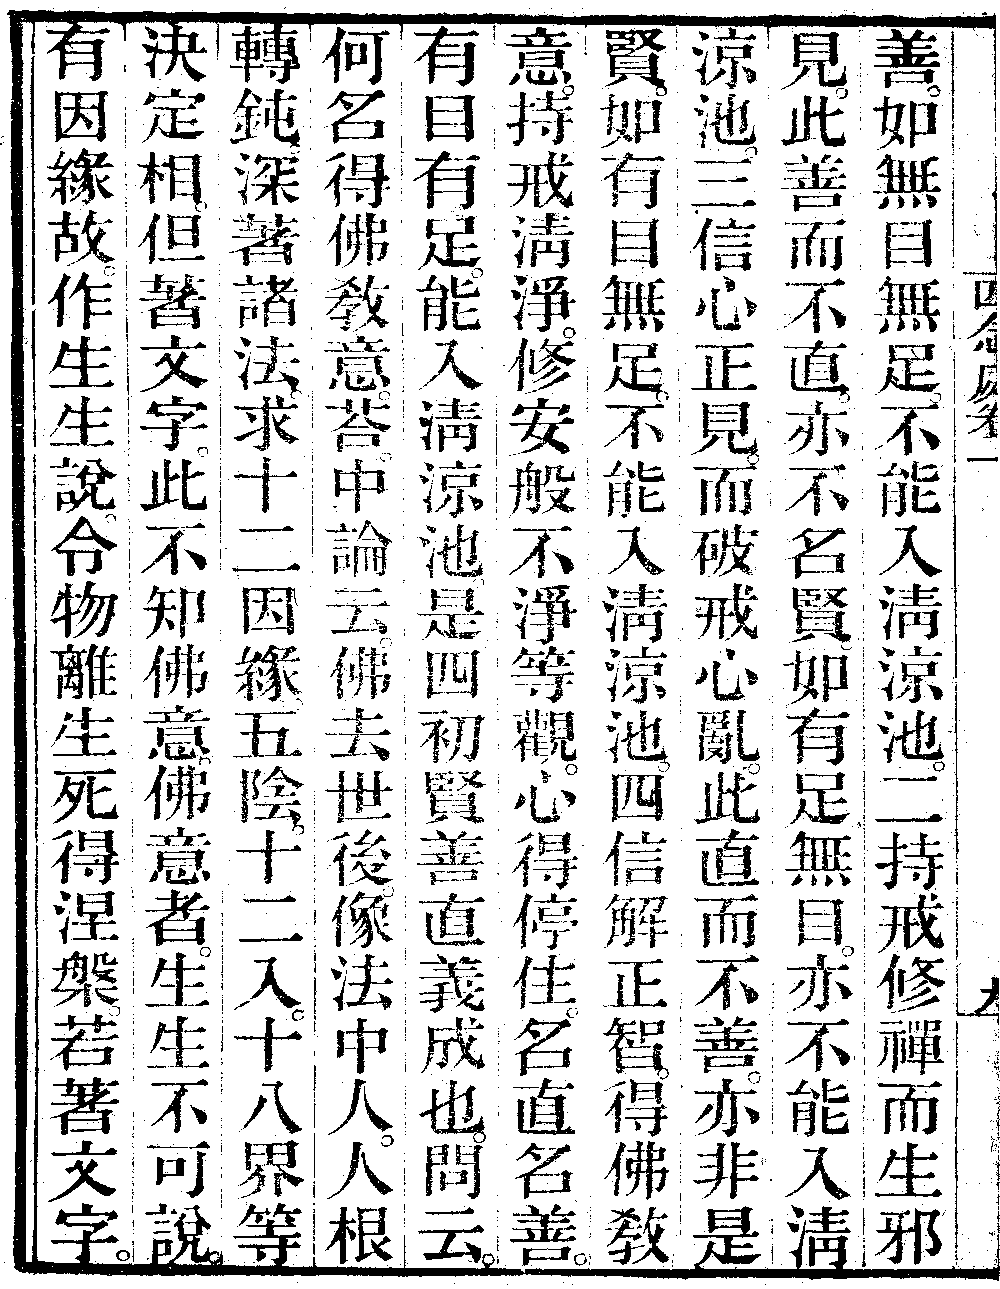 四念處卷一
九
善。如無目無足。不能入清涼池。二持戒修禪而生邪
見。此善而不直。亦不名賢。如有足無目。亦不能入清
涼池。三信心正見。而破戒心亂。此直而不善。亦非是
賢。如有目無足。不能入清涼池。四信解正智。得佛教
意。持戒清淨。修安般不淨等觀。心得停住。名直名善。
有目有足。能入清涼池是四初賢善直義成也。問云。
何名得佛教意。荅。中論云。佛去世後。像法中人。人根
轉鈍。深著諸法。求十二因緣五陰。十二入。十八界等
決定相。但著文字。此不知佛意。佛意者。生生不可說。
有因緣故。作生生說。令物離生死得涅槃。若著文字。